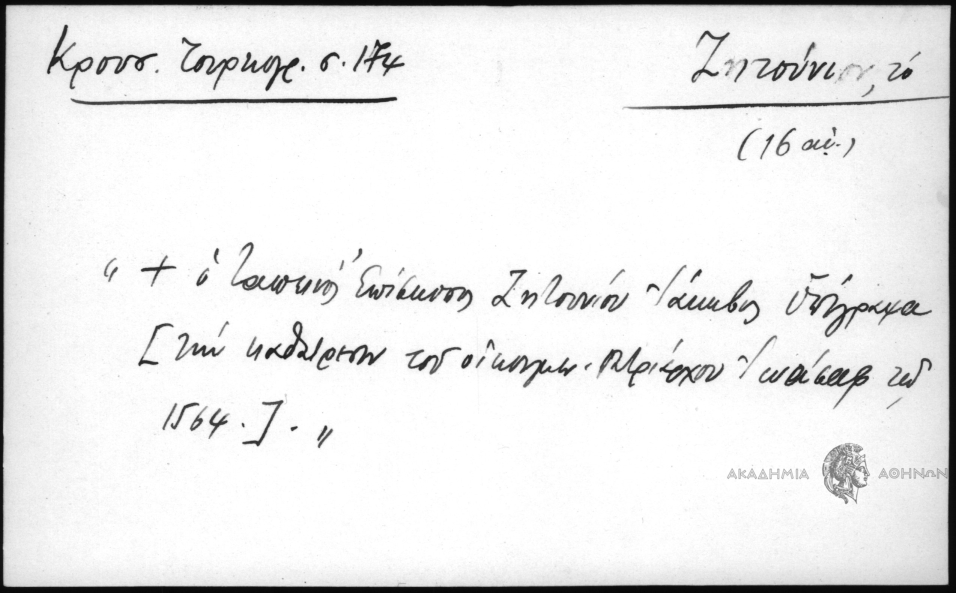 Κρουσ. Τουρκογρ. σ. 174
Ζητούνιον, τό
(16 αἰ.)
" + ὁ ταπεινὸς Ἐπίσκοπος Ζητουνίου Ἰάκωβος ὑπέγραψα
[τὴν καθαίρεσιν τοῦ οἰκουμεν. Πατριάρχου Ἰωάσαφ τῷ
1564.]. "
ΑΚΑΔΗΜΙΑ ΑΘΗΝΩΝ